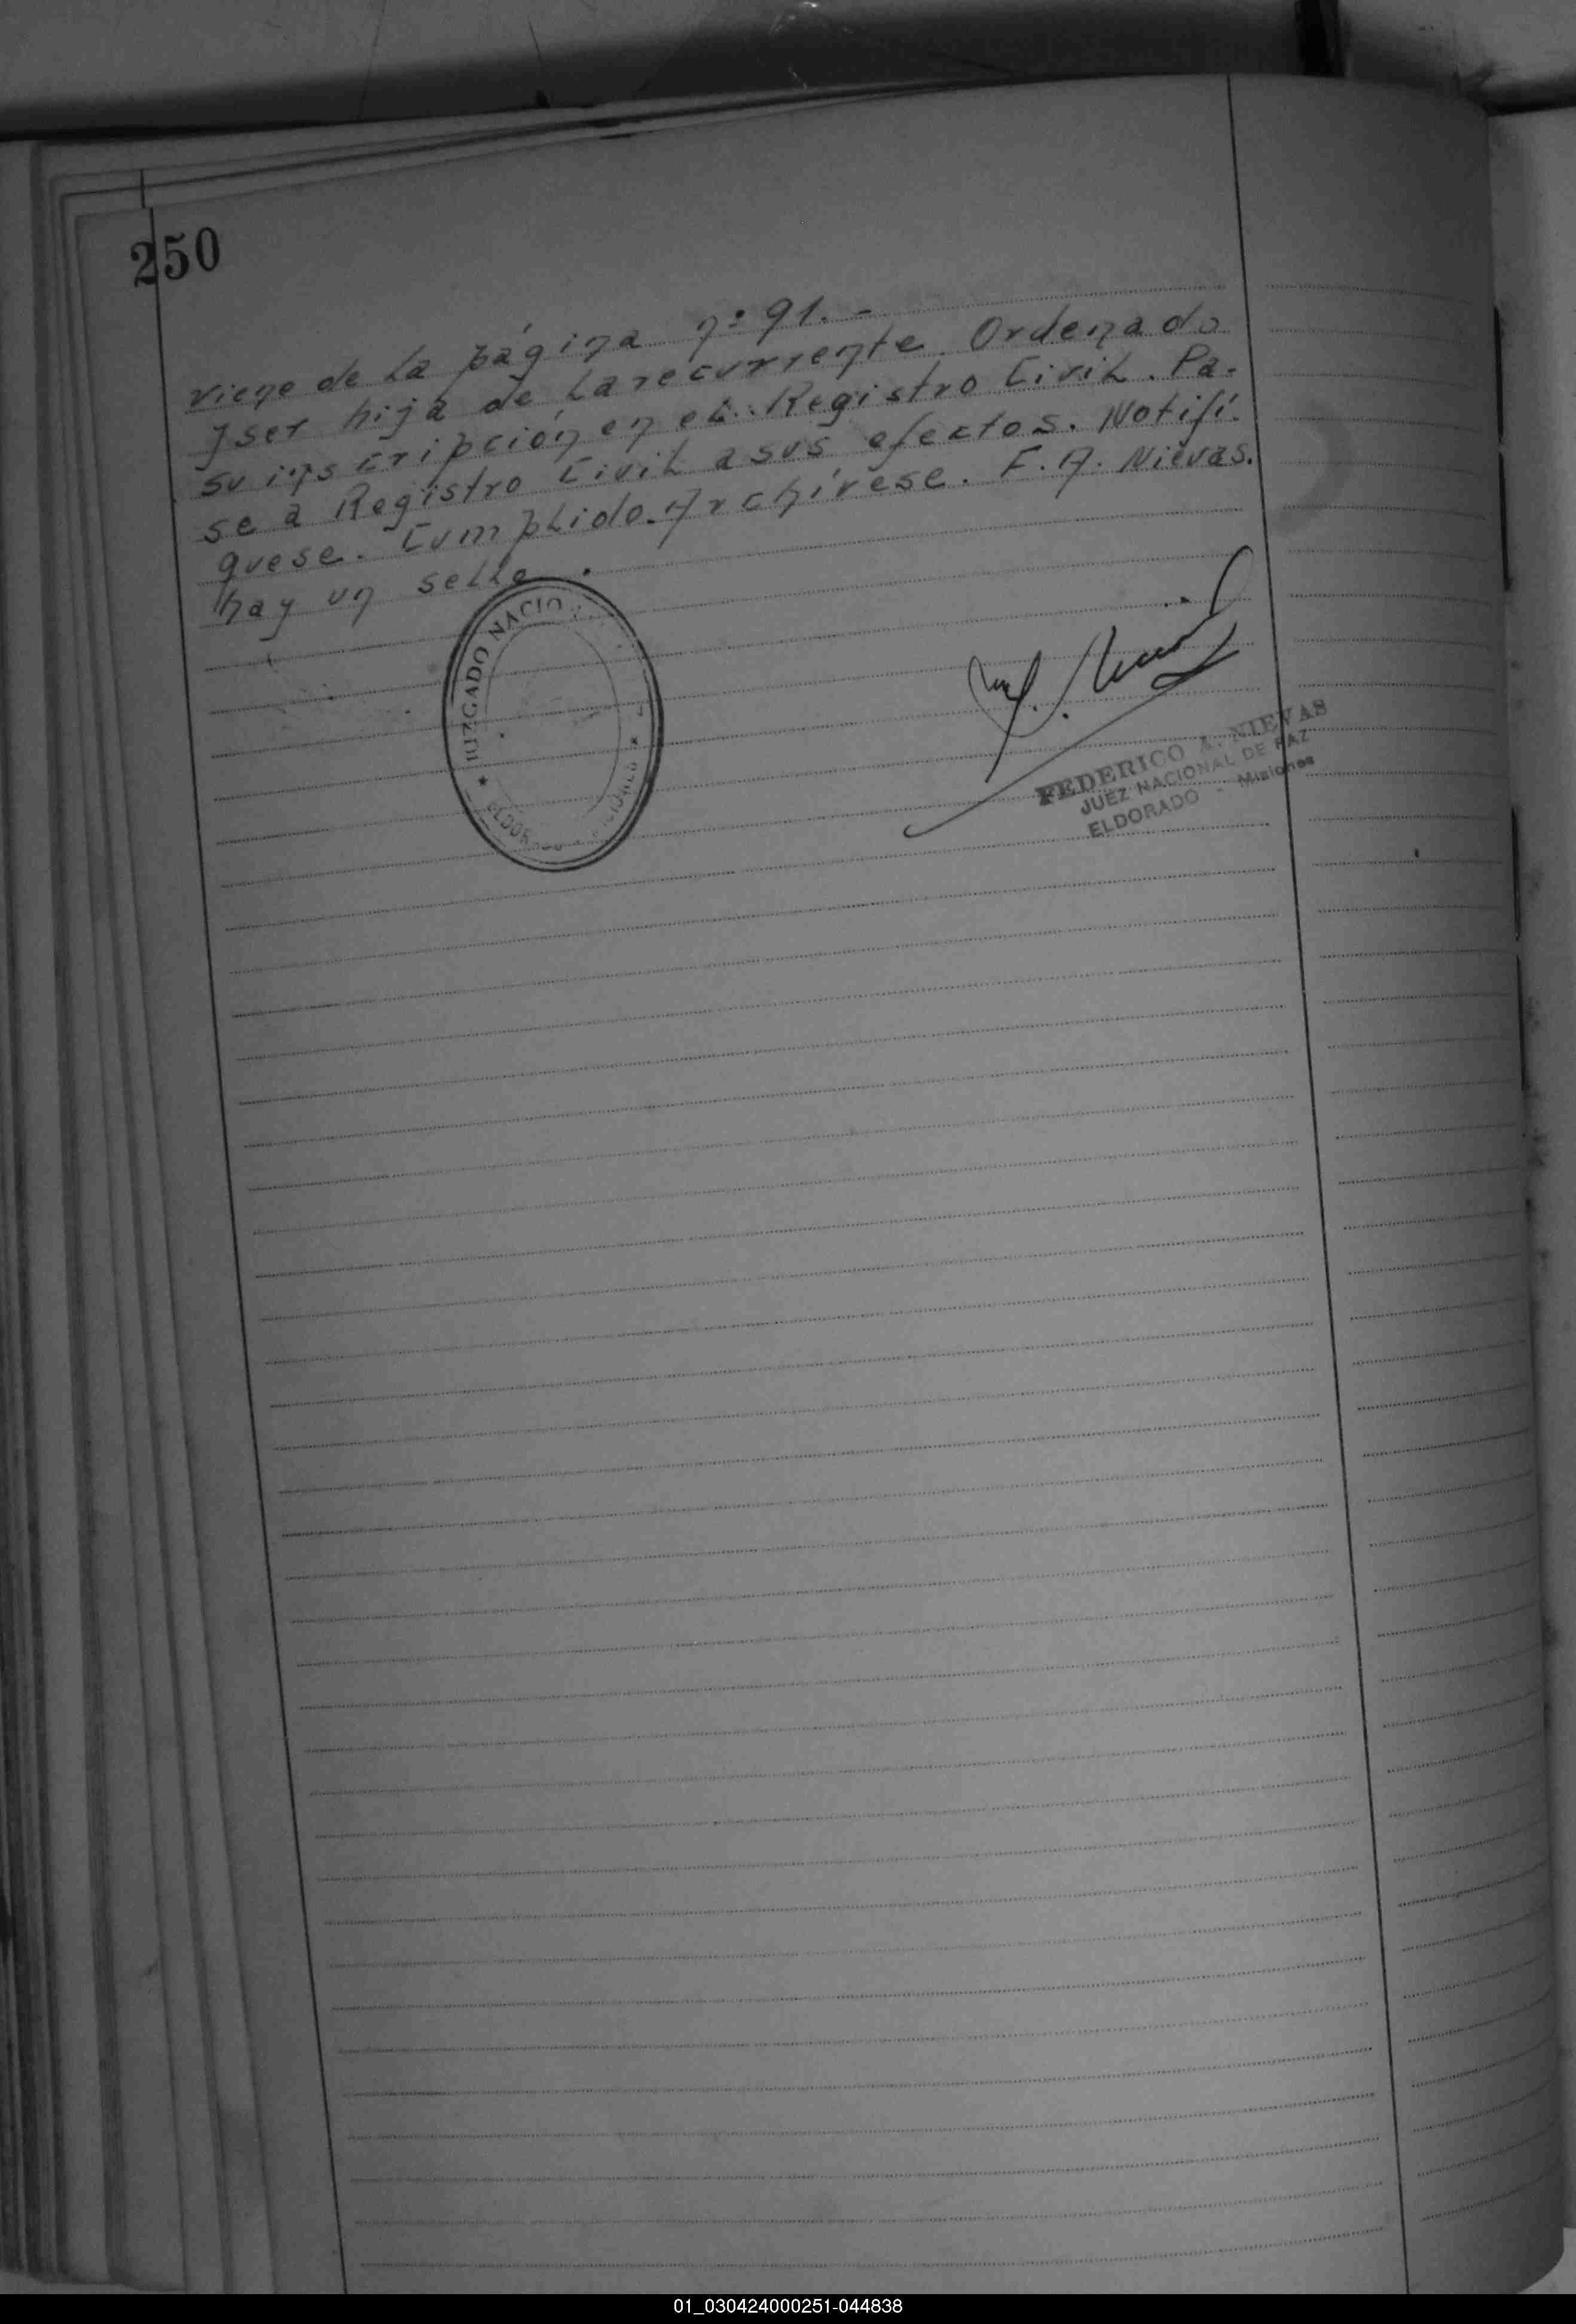 250
viene de la página nº 91. -
y ser hija de la recurrente. Ordenado
su inscripción en el Registro Civil. Pa-
se a Registro Civil a sus efectos. Notifí-
quese. Cumplido. Archívese. F. A. Nievas.
hay un sello.
JUZGADO NACIO
ELDOR
FEDERICO A. NIEVAS
JUEZ NACIONAL DE PAZ
ELDORADO - Misiones
01_030424000251-044838